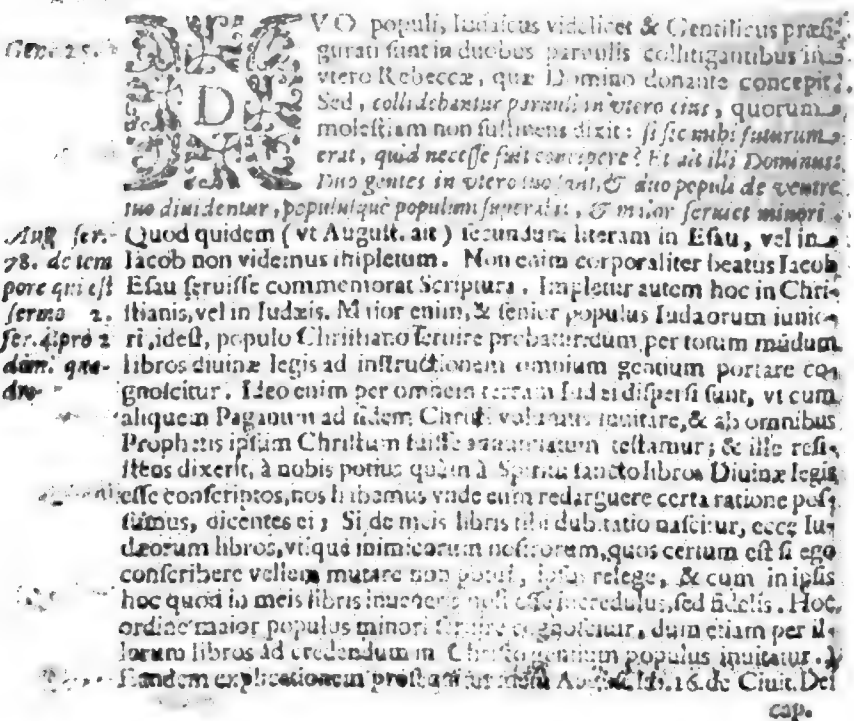 DVO populi, Iudaicus videlicet & Gentilicus præfi-
Gene. 25.
gurati sunt in duobus paruulis collitigantibus in
vtero Rebeccæ, quæ Domino donante concepit.
Sed, collidebantur paruuli in vtero eius, quorum
molestiam non sustinens dixit: si sic mihi futurum
erat, quid necesse fuit concipere? Et ait illi Dominus:
Duo gentes in vtero tuo sunt, & duo populi de ventre
tuo diuidentur, populusquè populum superabit, & maior seruiet minori.
Aug. ser.
78. de tem
pore qui est
sermo 2.
fer. 4. pro 2
dom. qua-
dra-
Quod quidem (vt August. ait) secundum literam in Esau, vel in
Iacob non videmus impletum. Non enim corporaliter beatus Iacob
Esau seruisse commemorat Scriptura. Impletur autem hoc in Chri-
stianis, vel in Iudæis. Maior enim, & senior populus Iudæorum iunio-
ri, idest, populo Christiano seruire probatur, dum per totum mūdum
libros diuinæ legis ad instructionem omnium gentium portare co-
gnoscitur. Ideo enim per omnem terram Iudei dispersi sunt, vt cum
aliquem Paganum ad fidem Christi volumus inuitare, & ab omnibus
Prophetis ipsum Christum fuisse annuntiatum testamur; & ille resi-
stens dixerit, à nobis potius quàm à Spiritu sancto libros Diuinæ legis
esse conscriptos, nos habemus vnde eum redarguere certa ratione pos-
sumus, dicentes ei; Si de meis libris tibi dubitatio nascitur, ecce Iu-
dæorum libros, vtiquè inimicorum nostrorum, quos certum est si ego
conscribere vellem mutare non potui, ipsos relege, & cum in ipsis
hoc quod in meis libris inueneris noli esse incredulus, sed fidelis. Hoc
ordine maior populus minori seruire cognoscitur, dum etiam per il-
lorum libros ad credendum in Christo gentium populus inuitatur.
Eandem explicationem August. lib. 16. de Ciuit. Dei
cap.